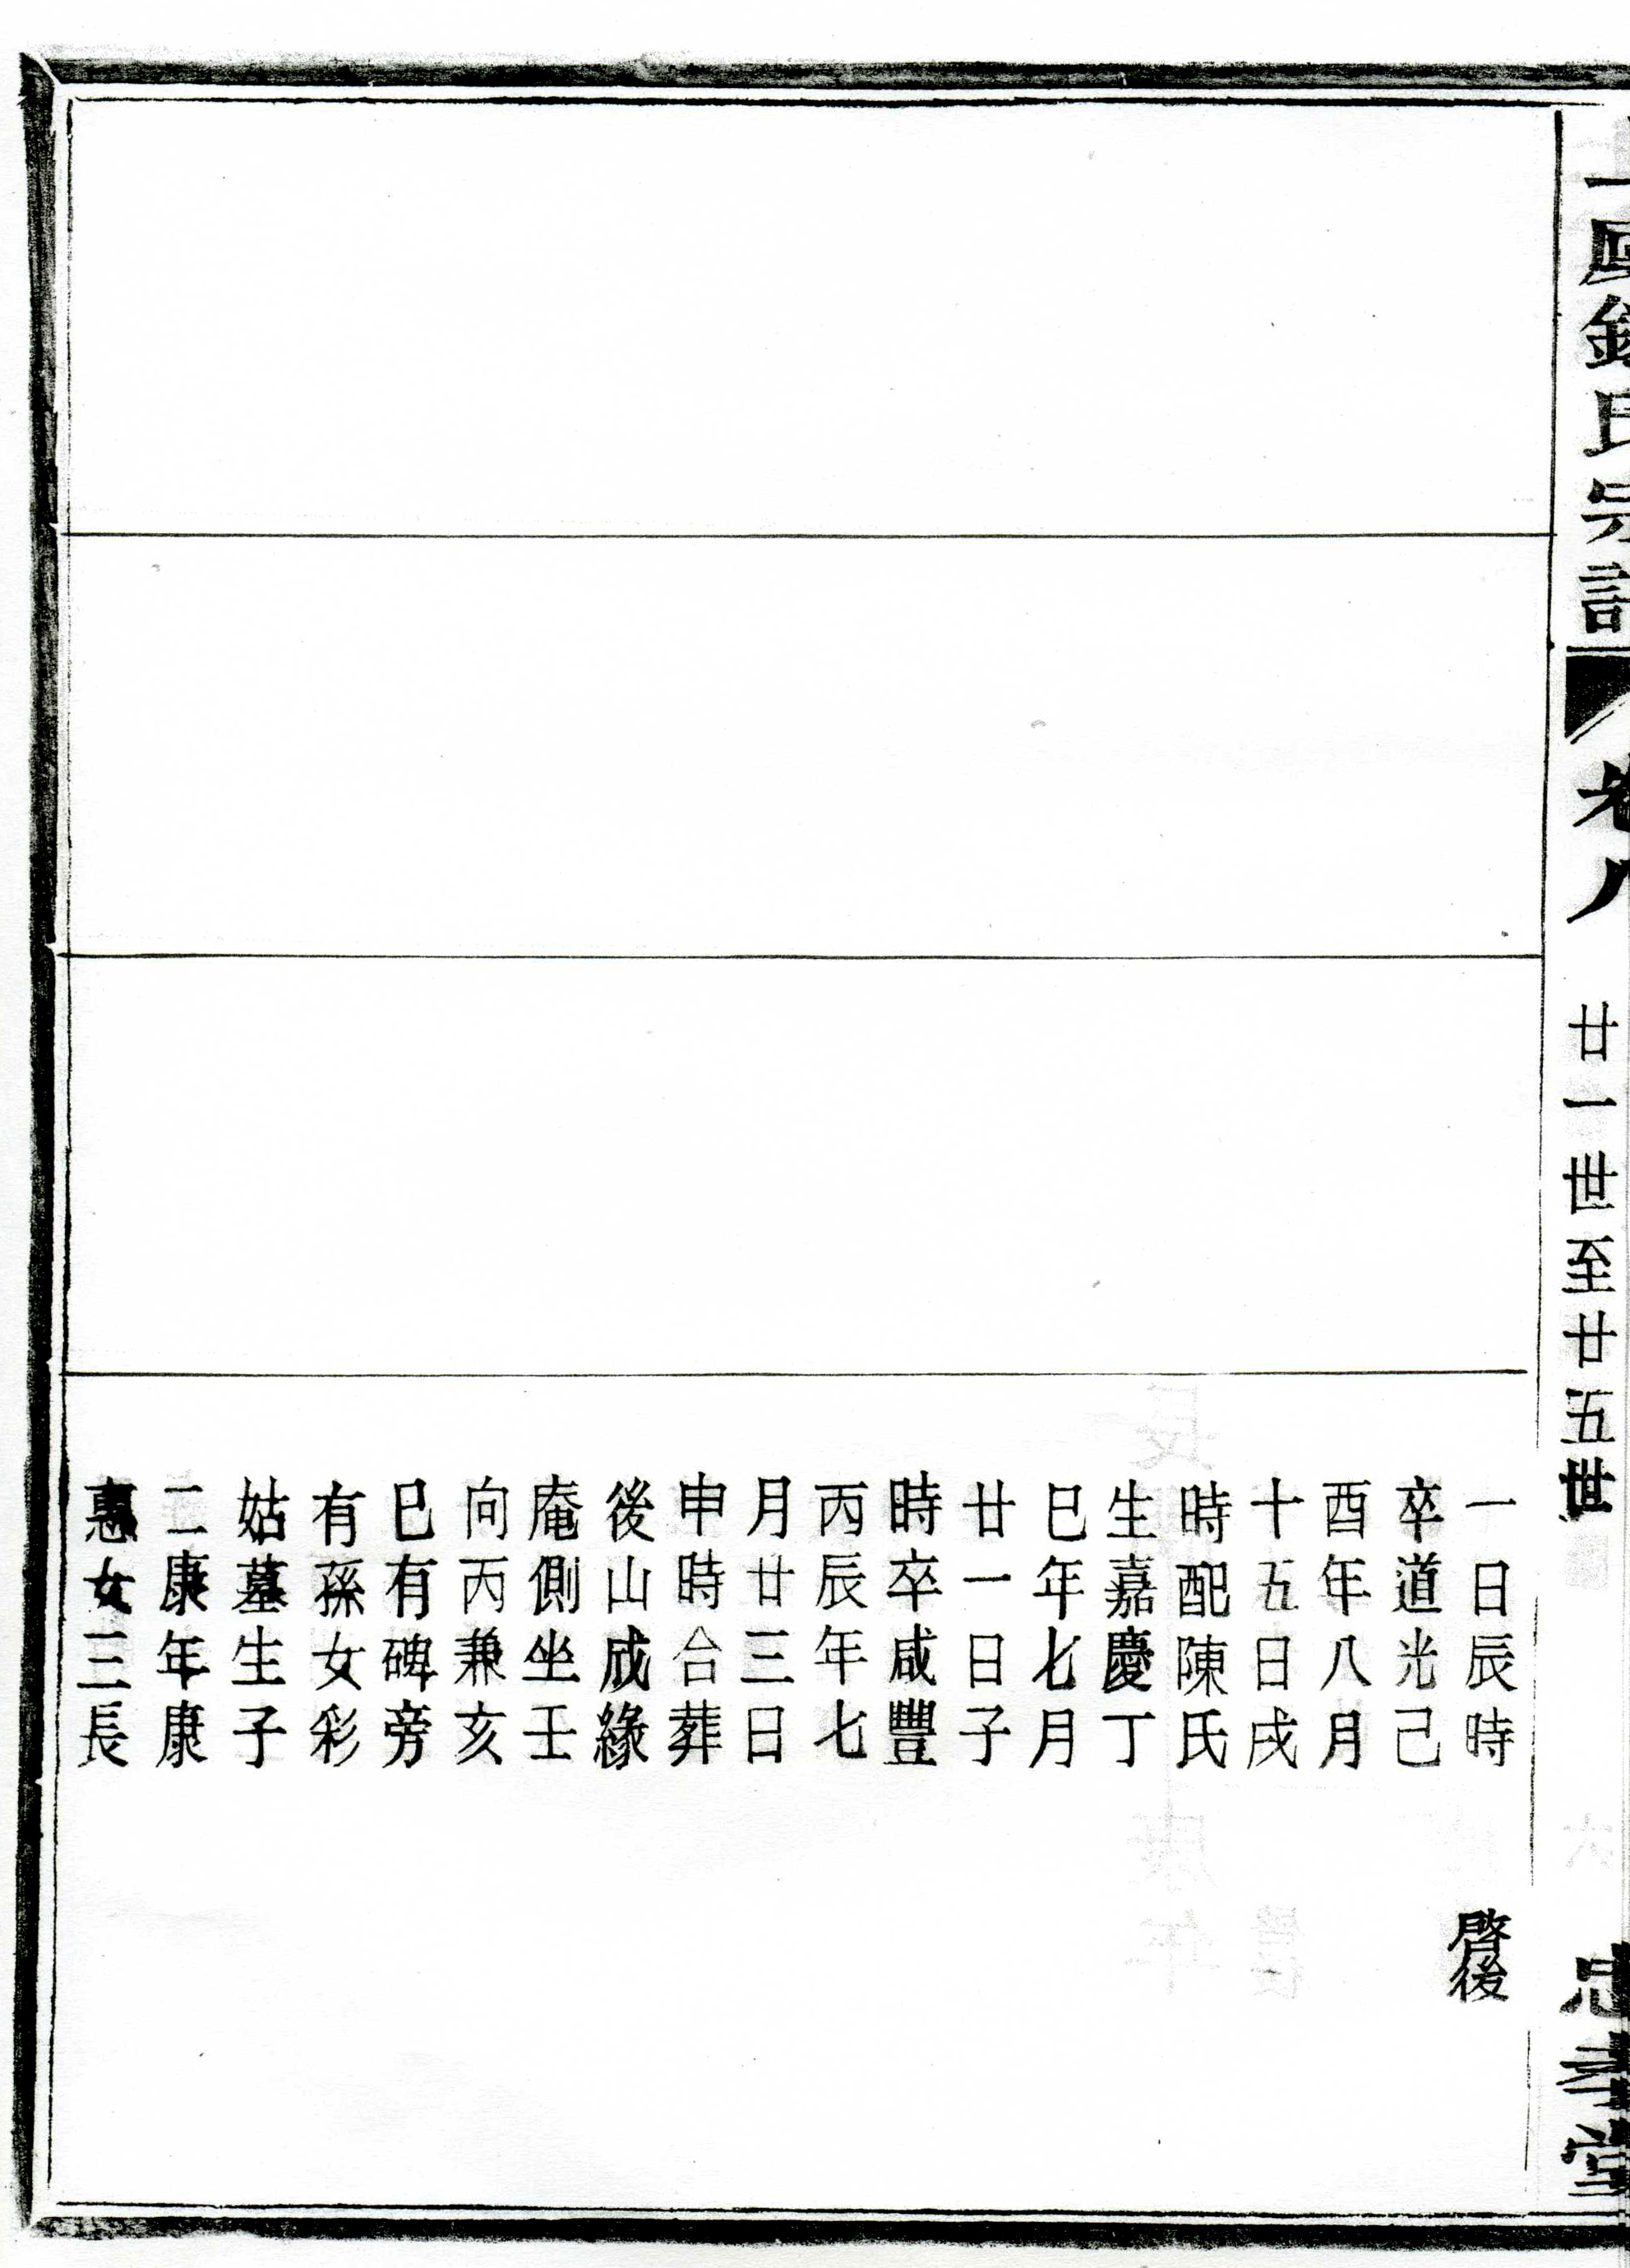 氏宗譜
卷八
廿一世至廿五世
忠孝堂
一日辰時
卒道光己
酉年八月
十五日戌
時配陳氏
生嘉慶丁
巳年七月
廿一日子
時卒咸豐
丙辰年七
月廿三日
申時合葬
後山成緣
庵側坐壬
向丙兼亥
巳有碑旁
有孫女彩
姑墓生子
二康年康
惠女三長
啓後